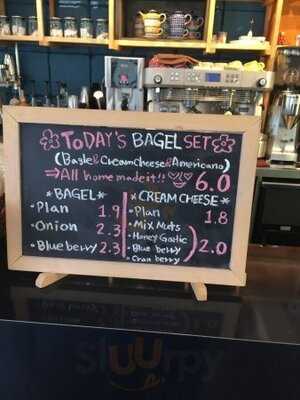 TODAY'S BAGEL SET
(Bagle & CreamCheese & Americano)
⇒ All home made it!! 6.0
*BAGEL*
· Plan 1.9
· Onion 2.3
· Blueberry 2.3
*CREAM CHEESE*
· Plan 1.8
· Mix Nuts
· Honey Garlic
· Blue berry
· Cran berry
2.0
sluurpy